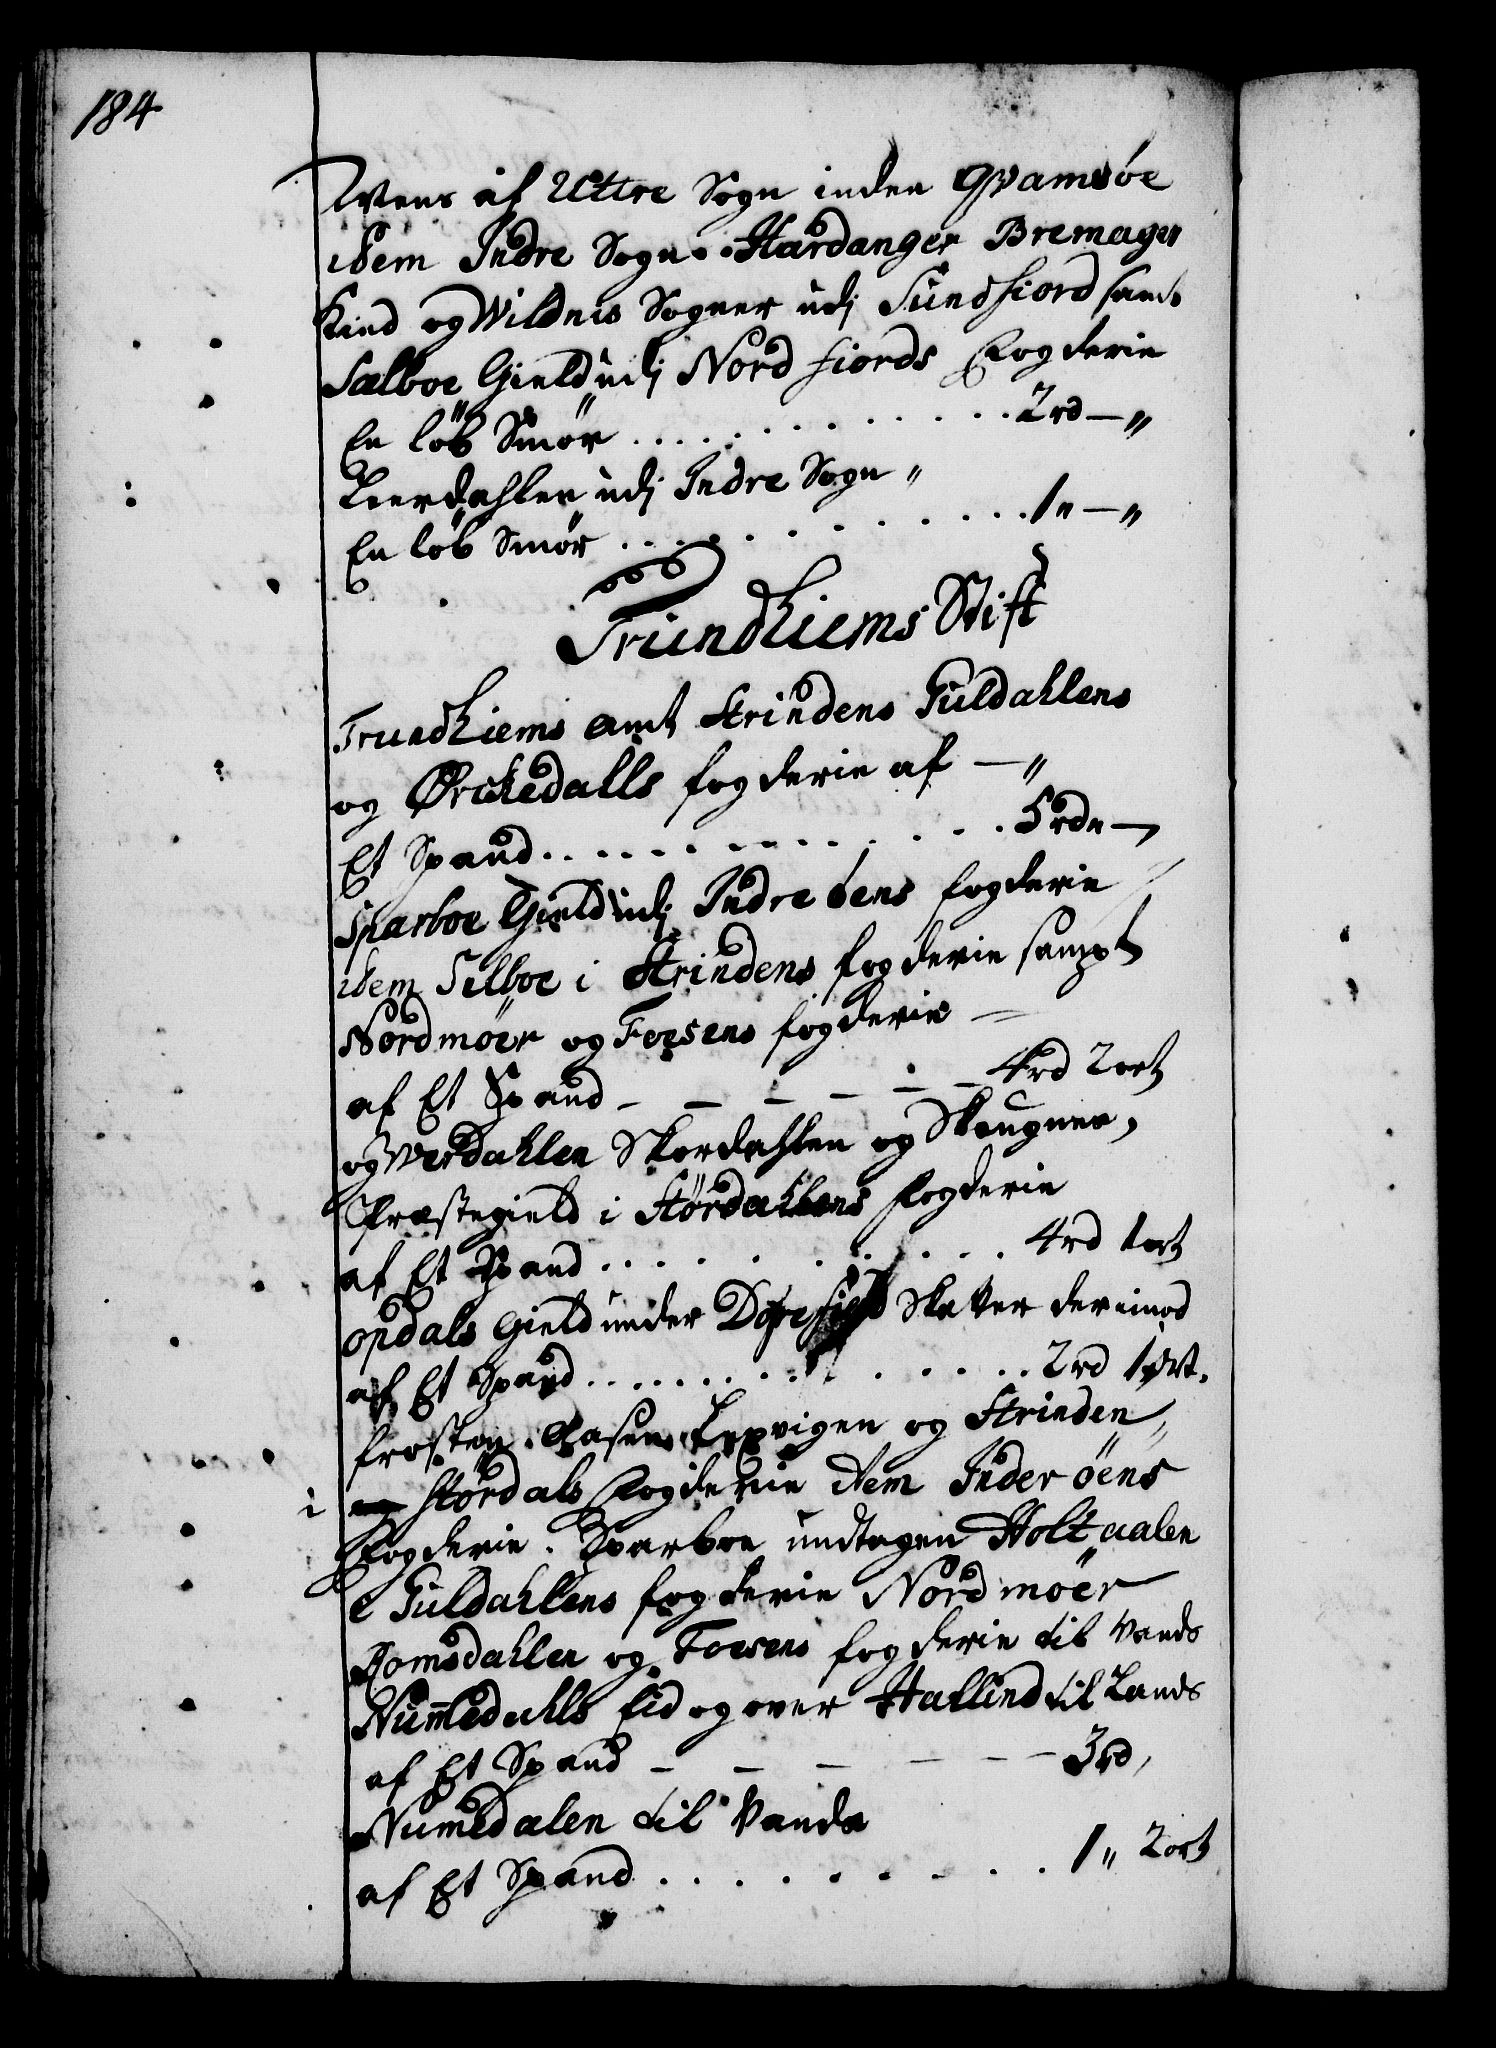 184
Wens af Uttre Sogn inden Qvamsøe
idem Indre Sogn. Hardanger Bremager
Kind og Wildnis Sogner udj Sundfiord samt
Sælboe Gield udj Nord fiords Fogderie
En løb Smør . . . . . . . . . . . 2 rd — "
Leerdahlen udj Indre Sogn "
En løb Smør . . . . . . . . . . . 1 " — "
Trundhiems Stift
Trundhiems Amt Strindens Guldahlens
og Ørckedalls fogderie af — "
Et Spand . . . . . . . . . . . . 5 rd —
Sparboe Gield udj Indreøens fogderie
idem Selboe i Strindens fogderie sampt
Nordmöer og Foesens fogderie —
af Et Spand — — — — — — 4 rd 2 ort
og Werdahlen Skordahlen og Skougner,
Præstegield i Størdahlens fogderie
af Et Spand . . . . . . . . . . 4 rd 1 ort
Opdals Gield under Dofrefield Skatter derimod
af Et Spand . . . . . . . . . . . 2 rd 1 ort.
frosten Aasen Lexvigen og Strinden
i Størdals fogderie idem Inderöens
Fogderie. Sparboe undtagen Holtaalen
e Guldahlens fogderie Nordmöer
Romsdahlen og Foesens fogderie til Vands
Nummedahls Eid og over Halland til Lands
af Et Spand — — — — — — 3 rd,
Numedalen til Vands
af Et Spand . . . . . . . . . . 1 " 2 ort